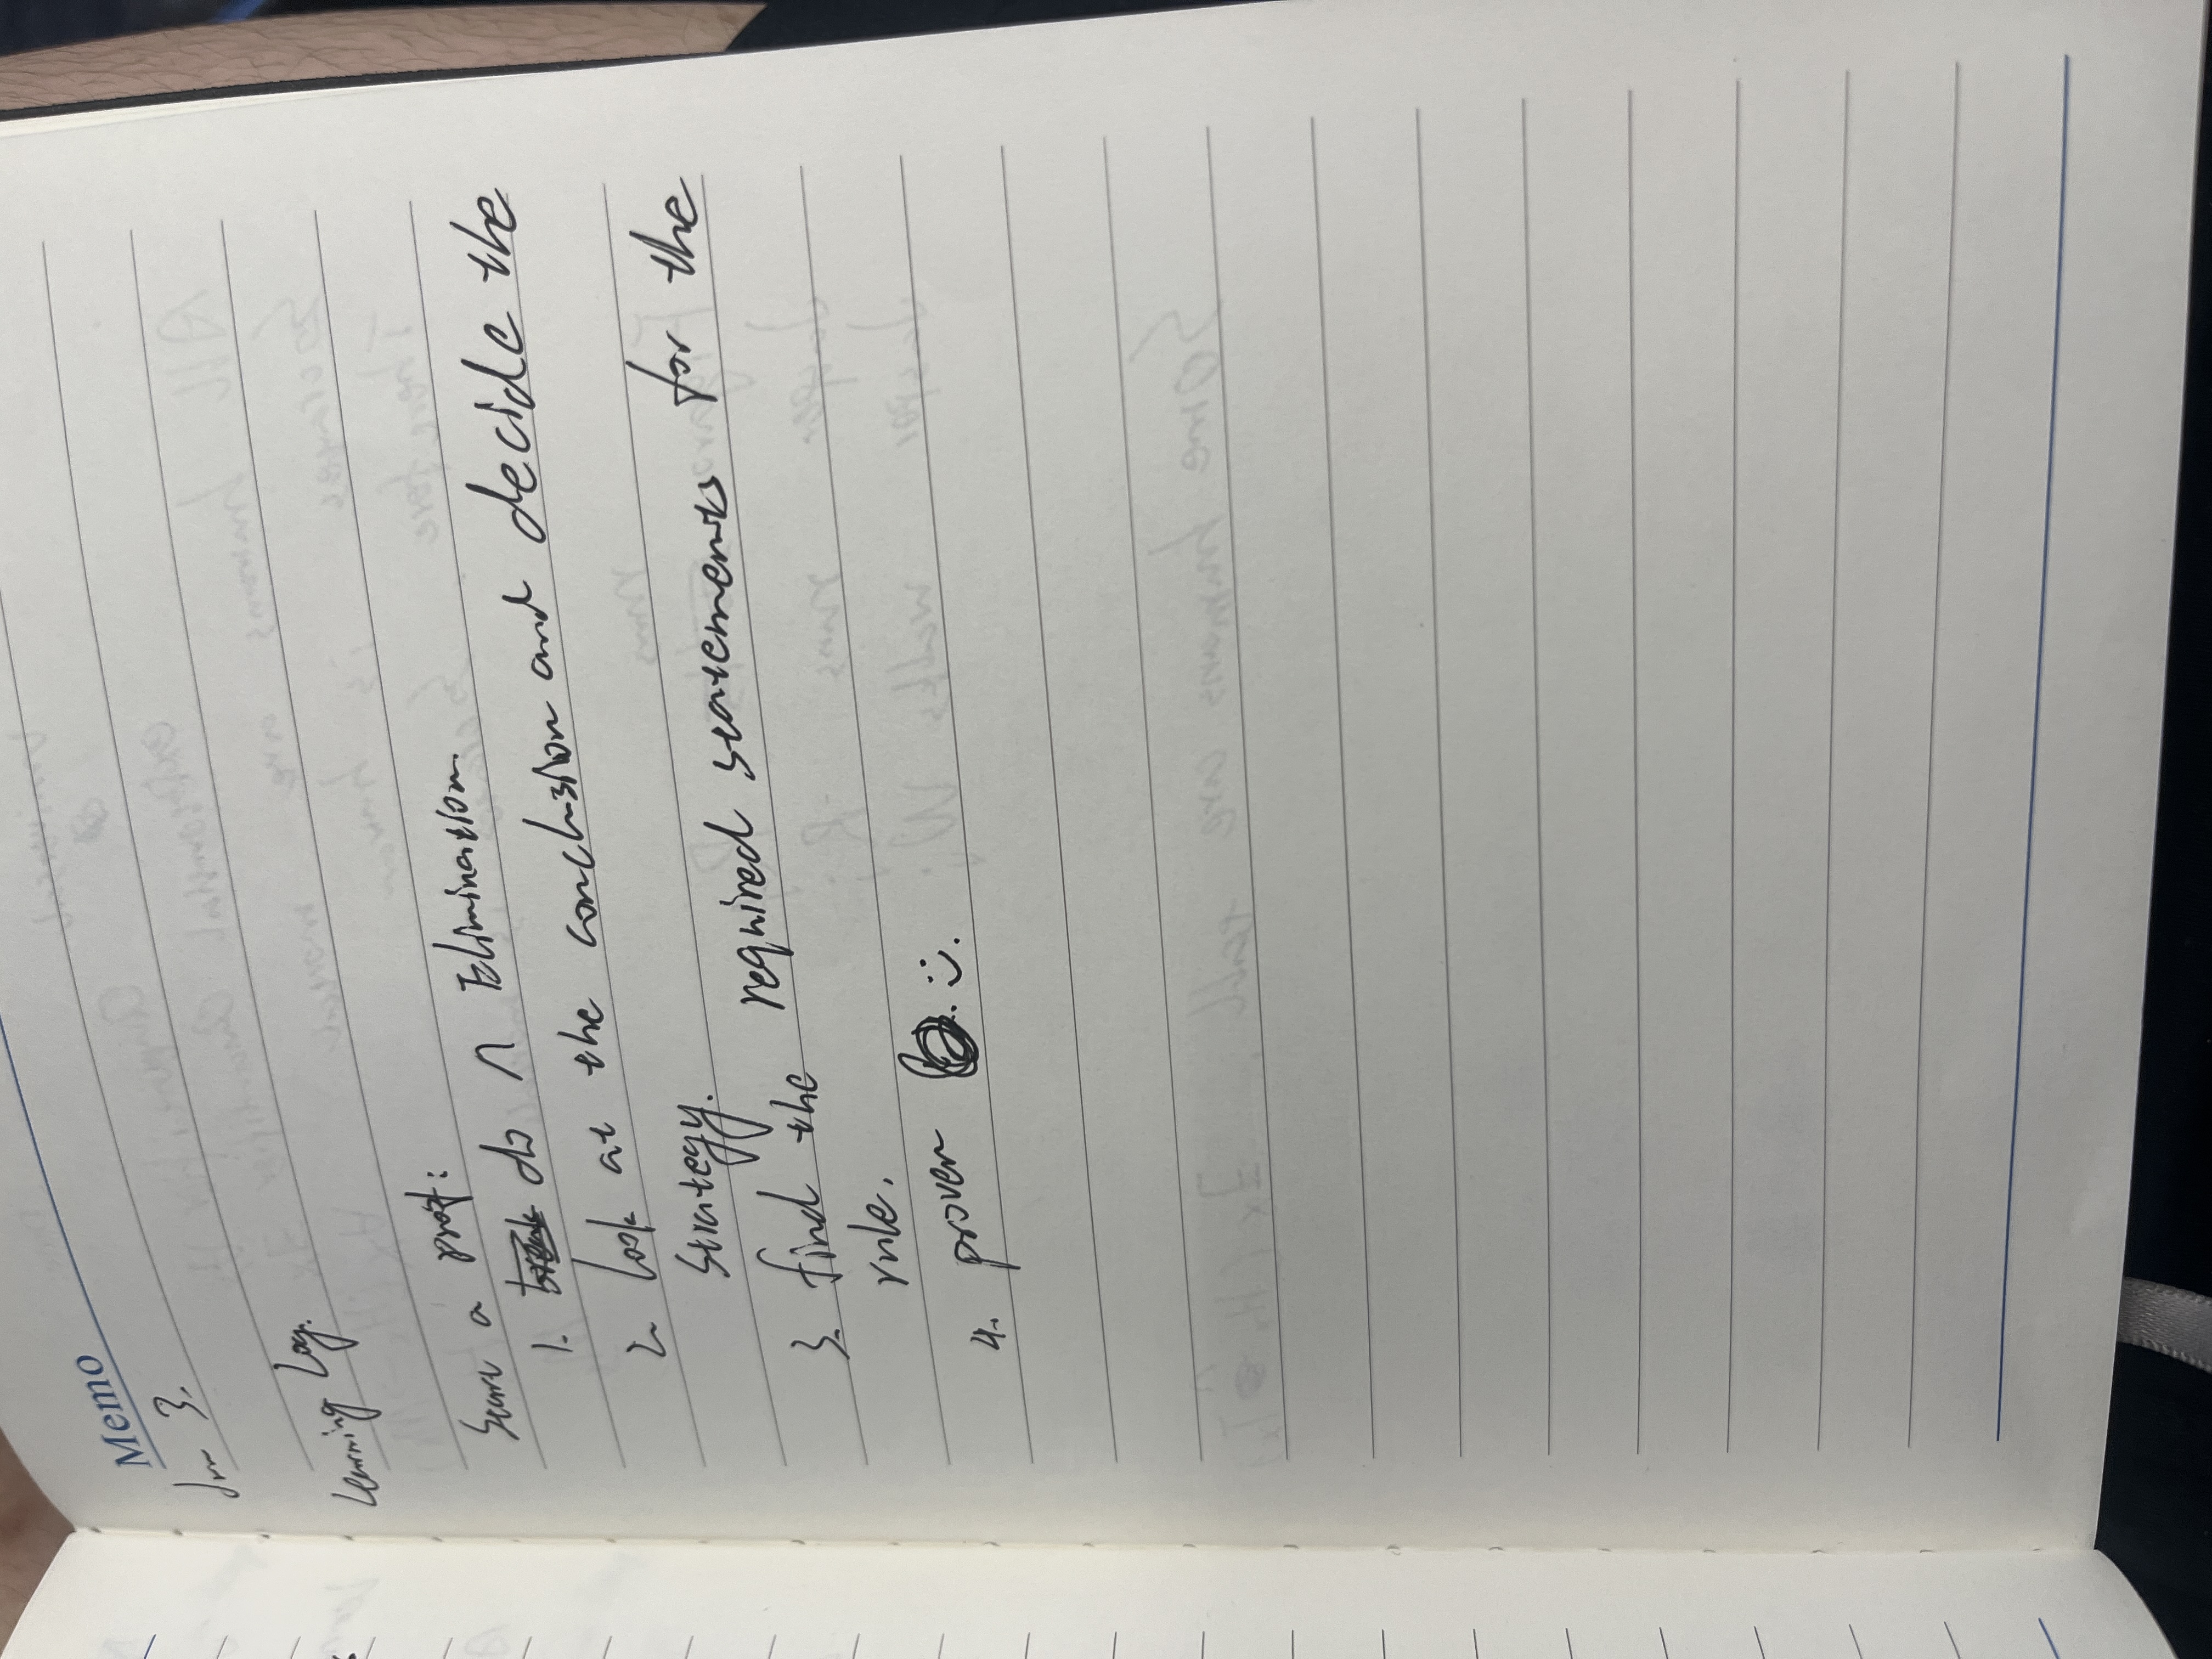 Memo
Jun 3.
Learning Log.
Start a proof:
1. do ∩ Elimination.
2. Look at the conclusion and decide the
strategy.
3. find the required statements for the
rule.
4. proven :).